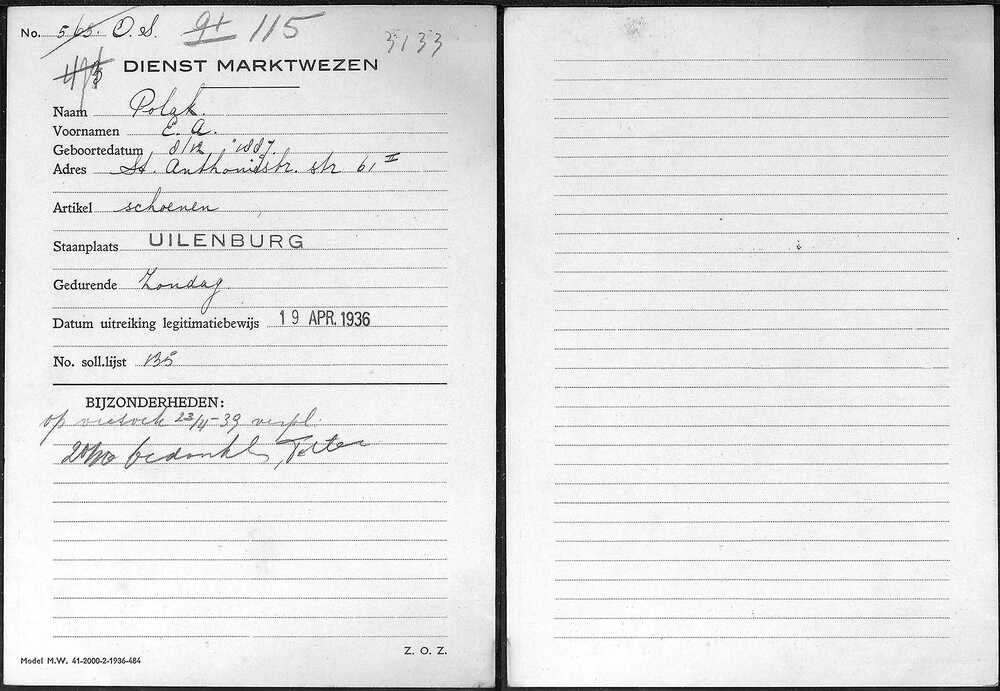 No. 565. O. S. 91 115 3133
DIENST MARKTWEZEN
Naam Polak.
Voornamen E. A.
Geboortedatum 8/12 1887.
Adres St. Anthoniestr. str 61 II
Artikel schoenen
Staanplaats UILENBURG
Gedurende Zondag
Datum uitreiking legitimatiebewijs 19 APR. 1936
No. soll.lijst 135
BIJZONDERHEDEN:
op verzoek 23/4-39 verpl.
bedankt
Z. O. Z.
Model M.W. 41-2000-2-1936-484